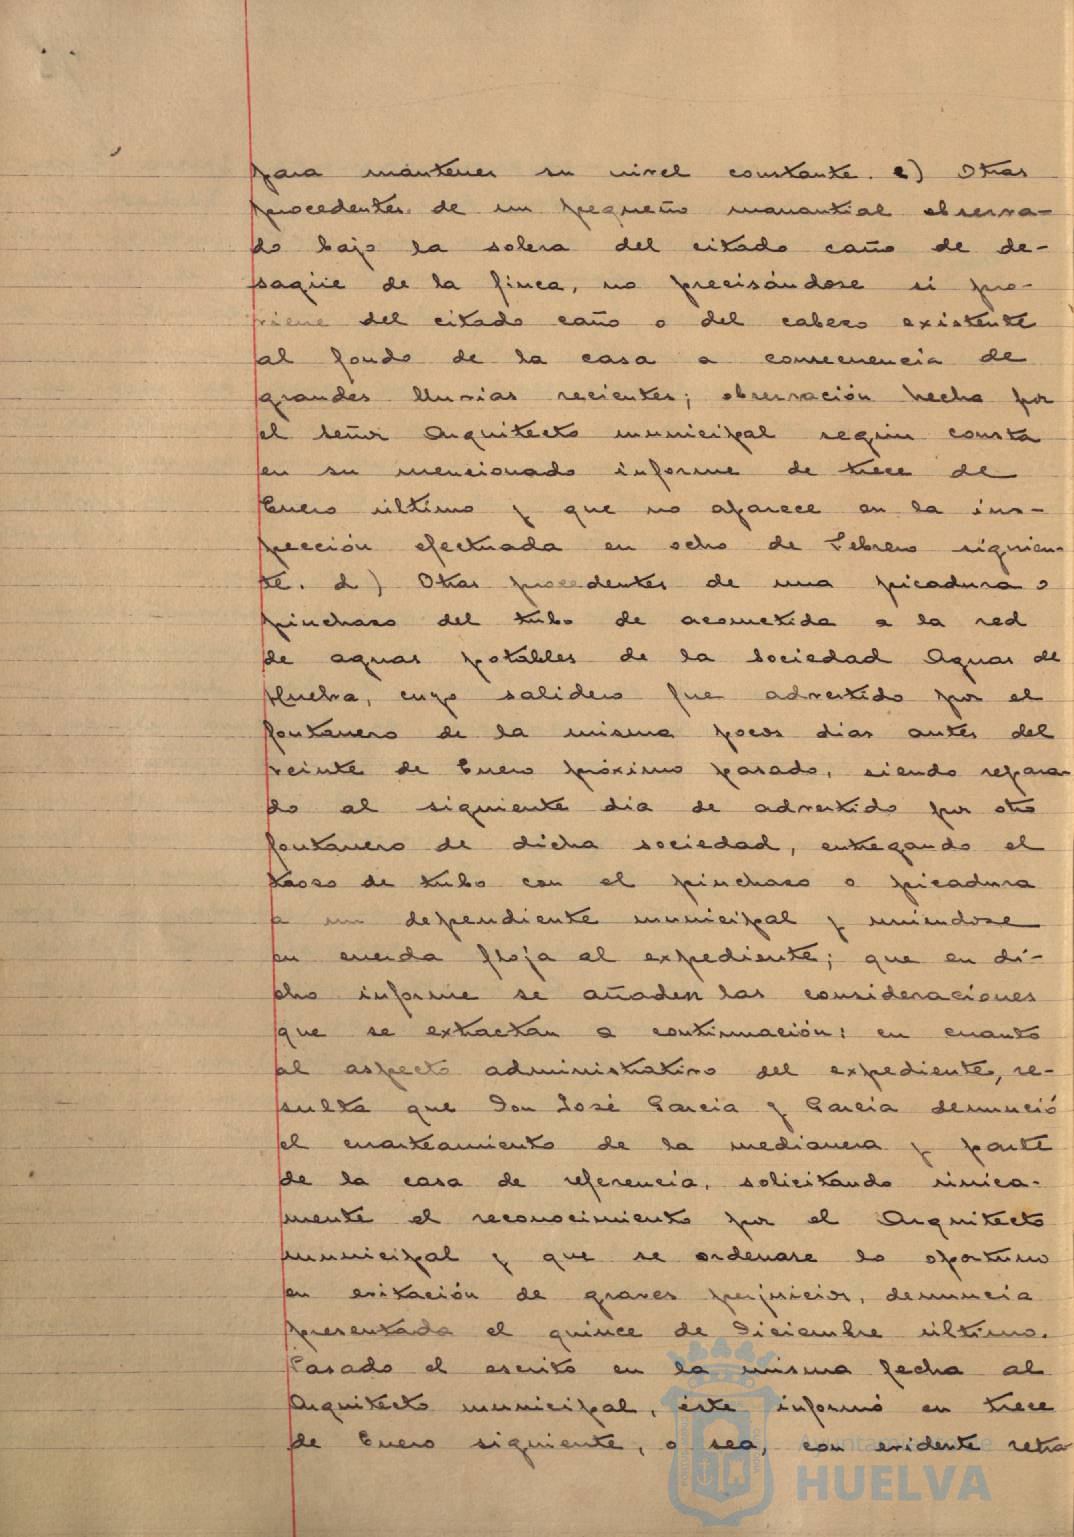 para mantener su nivel constante. c) Otras
procedentes de un pequeño manantial observa-
do bajo la solera del citado caño de de-
sagüe de la finca, no precisándose si pro-
viene del citado caño o del cabezo existente
al fondo de la casa a consecuencia de
grandes lluvias recientes; observación hecha por
el señor Arquitecto municipal según consta
en su mencionado informe de trece de
Enero último y que no aparece en la ins-
pección efectuada en ocho de Febrero siguien-
te. d) Otras procedentes de una picadura o
pinchazo del tubo de acometida a la red
de aguas potables de la Sociedad Aguas de
Huelva, cuyo salidero fue advertido por el
fontanero de la misma pocos dias antes del
veinte de Enero próximo pasado, siendo repara-
do al siguiente dia de advertido por otro
fontanero de dicha sociedad, entregando el
trozo de tubo con el pinchazo o picadura
a un dependiente municipal y uniendose
en cuerda floja al expediente; que en di-
cho informe se añaden las consideraciones
que se extractan a continuación: en cuanto
al aspecto administrativo del expediente, re-
sulta que Don José Garcia y Garcia denunció
el cuarteamiento de la medianera y parte
de la casa de referencia, solicitando única-
mente el reconocimiento por el Arquitecto
municipal y que se ordenase lo oportuno
en evitación de graves perjuicios, denuncia
presentada el quince de Diciembre último.
Pasado el escrito en la misma fecha al
Arquitecto municipal, éste informó en trece
de Enero siguiente, o sea, con evidente retra
Ayuntamiento de
HUELVA